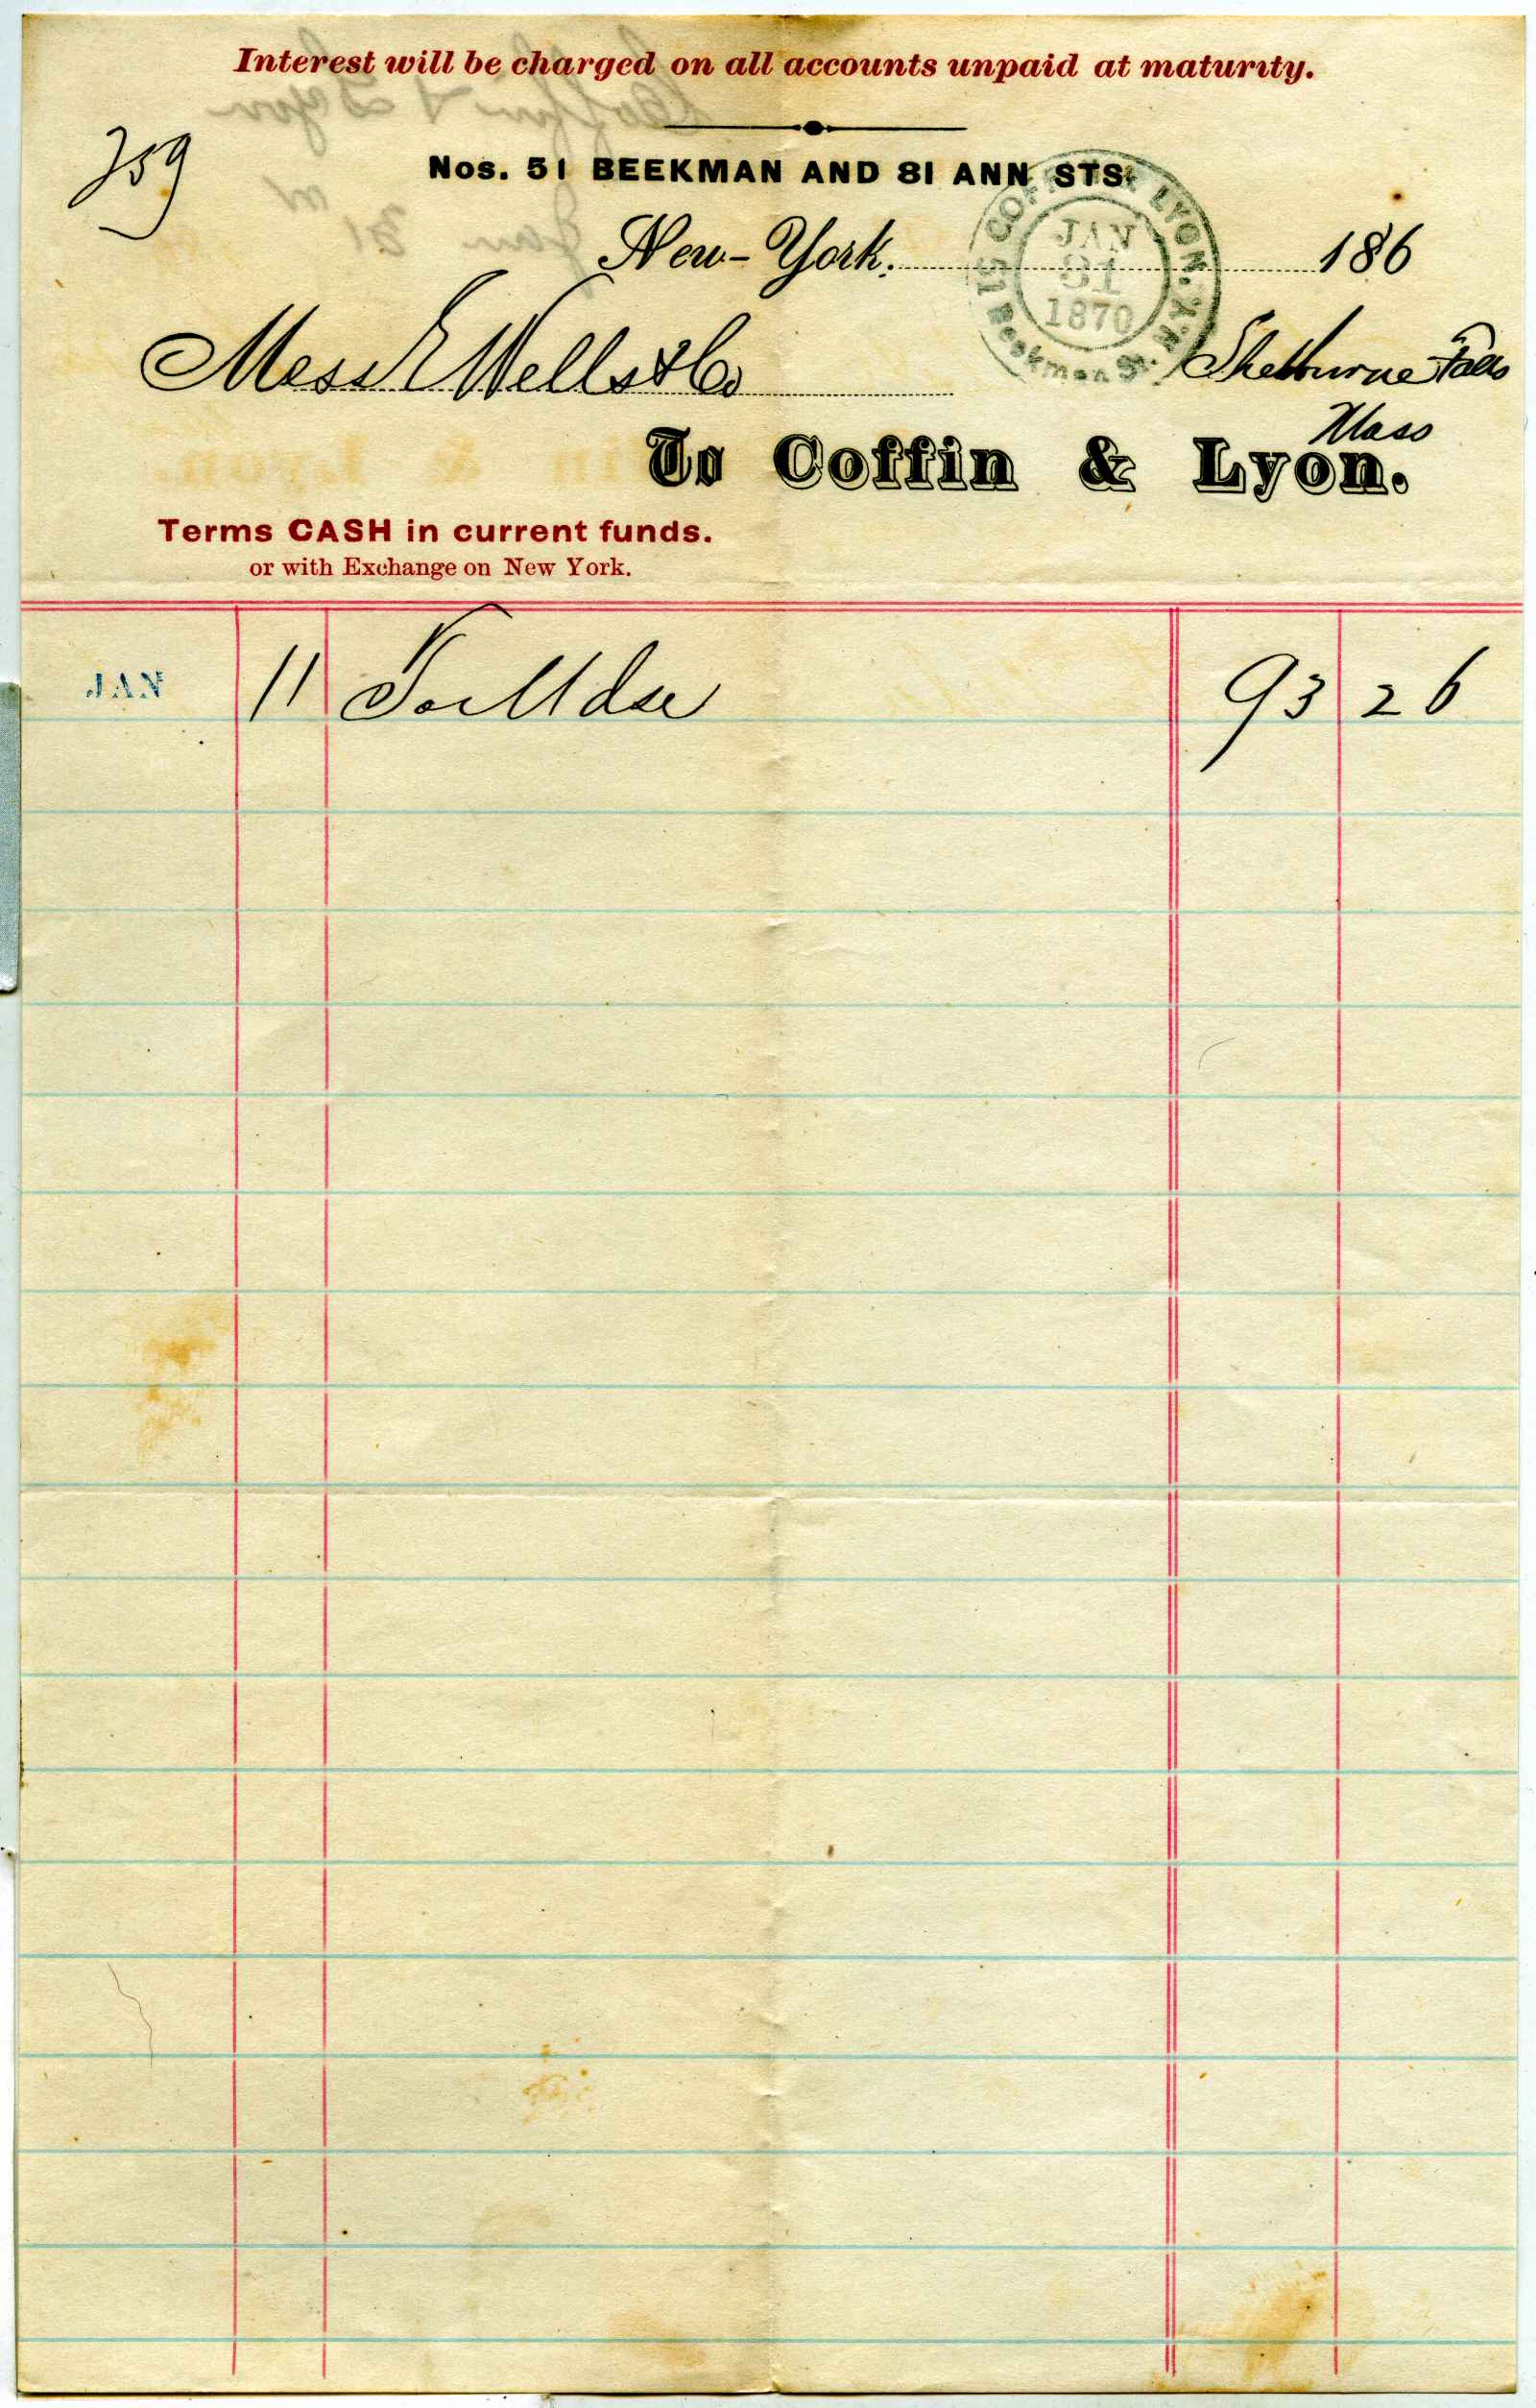 Interest will be charged on all accounts unpaid at maturity.
759
Nos. 51 BEEKMAN AND 81 ANN STS.
New-York. 186
COFFIN & LYON. N.Y.
JAN
31
1870
51 Beekman St.
Mess E Wells & Co Shelburne Falls
Mass
To Coffin & Lyon.
Terms CASH in current funds.
or with Exchange on New York.
JAN 11 To Mdse 93 26